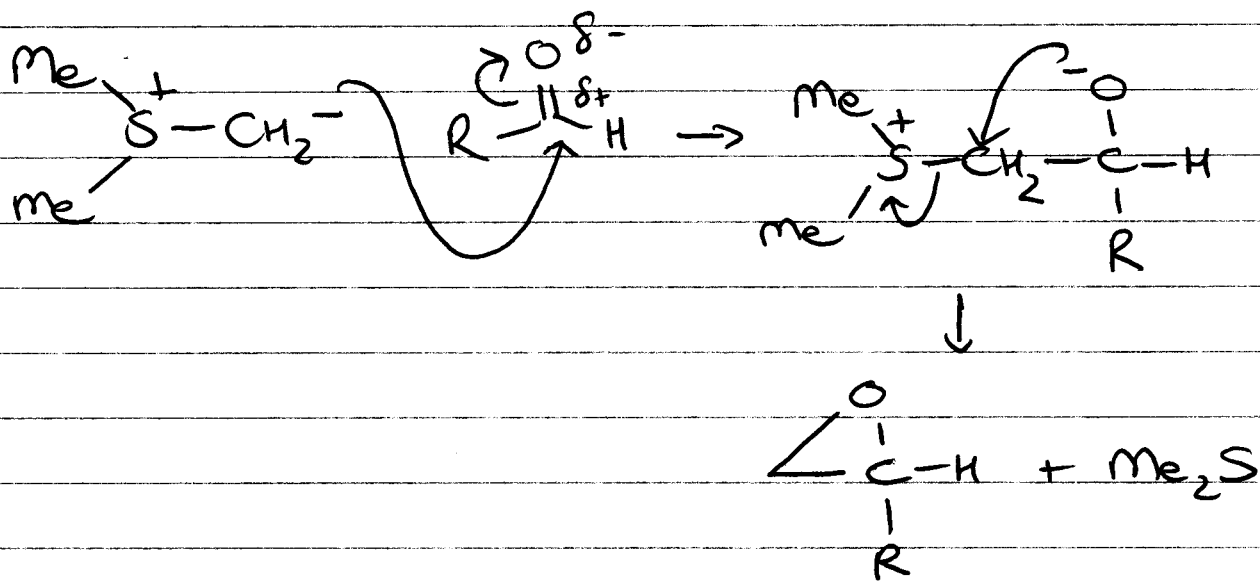 Me
S⁺ — CH₂⁻
Me
O δ-
δ+
R H →
Me
S⁺ — CH₂ — C — H
⁻O
Me
R
↓
O
C — H + Me₂S
R